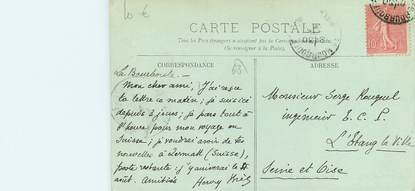 10 €
CARTE POSTALE
Tous les Pays étrangers n'acceptent pas la Correspondance
(Se renseigner à la Poste)
CORRESPONDANCE
ADRESSE
La Bourboule -
Mon cher ami, J'ai reçu
ta lettre ce matin; je suis ici
depuis 2 jours; je pars tout à
l'heure pour mon voyage en
Suisse; je voudrais avoir de tes
nouvelles à Zermatt (Suisse),
poste restante; j'y arriverai le
août. Amitiés
Henry
Monsieur Serge
ingénieur E. C. P.
L'Étang la Ville
Seine et Oise